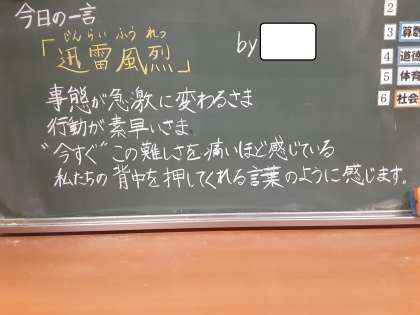 今日の一言
じんらいふうれつ
「迅雷風烈」 by
事態が急激に変わるさま
行動が素早いさま
"今すぐ"この難しさを痛いほど感じている
私たちの背中を押してくれる言葉のように感じます。
2
3 算数
4 道徳
5 体育
6 社会